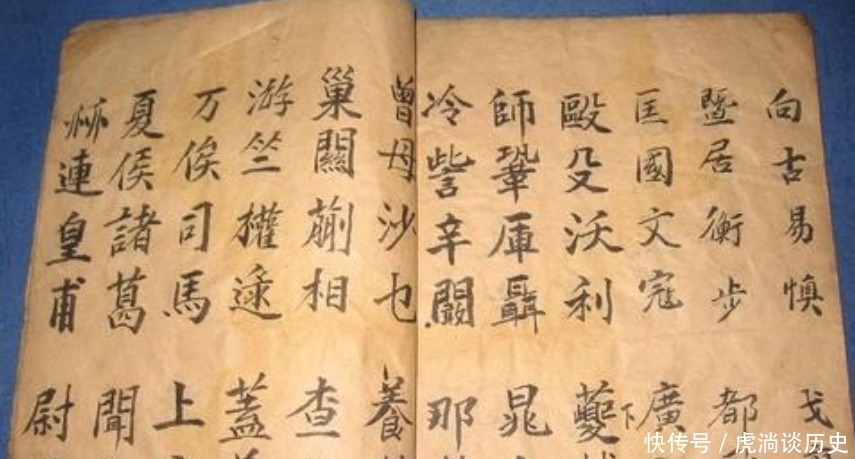 向古易慎戈
暨居衡步都
匡國文寇廣
毆殳沃利蘷下
師鞏厙聶晁
冷訾辛闞那
曾母沙乜養
巢關蒯相查
游竺權逯蓋
万俟司馬上
夏侯諸葛聞
赫連皇甫尉
快传号 / 虎淌谈历史